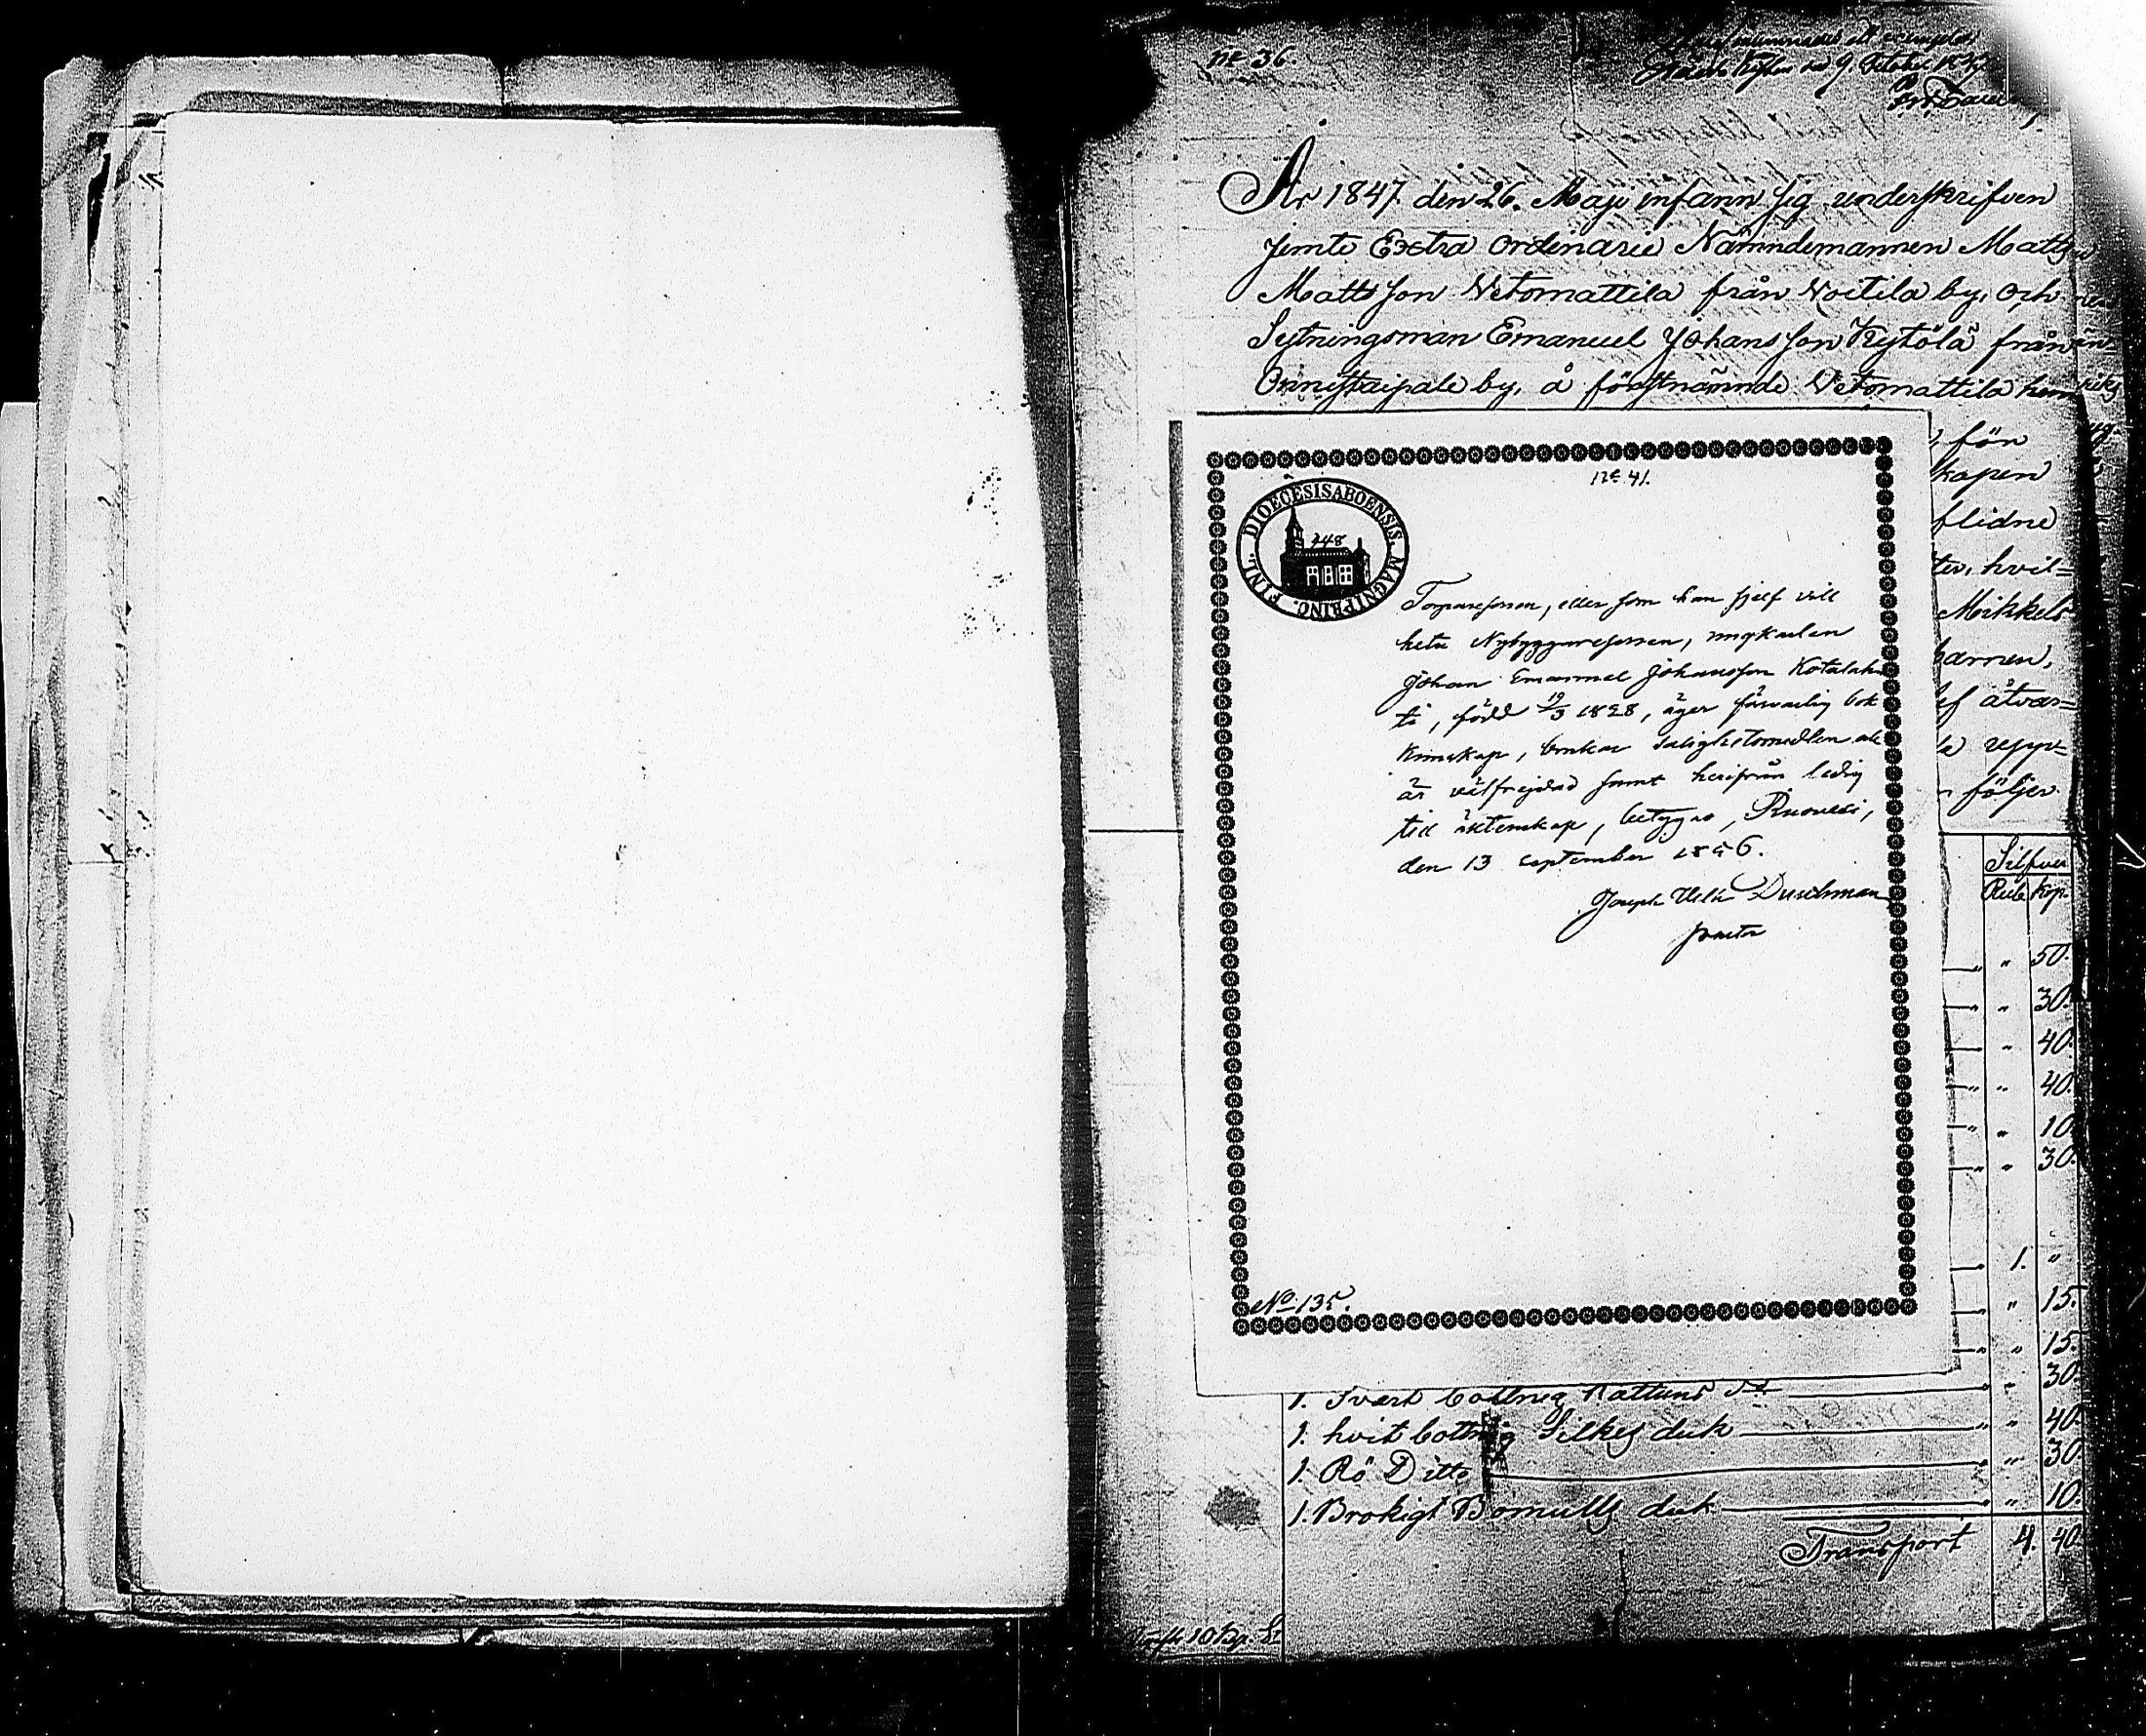 nr 36.
År 1847 den 26. Maji infann sig underskrifven
jemte Extra Ordinarie Nämndemannen Matts
Mattsson Vetomattila från Voitila by, och
Sytningsman Emanuel Johansson Kytölä från
Onnistaipale by, å förstnämnde Vetomattila hem
, för
kapen
flidne
ter, hvil=
Mikkels
barnen,
åtvar=
upp=
följer
nr 41.
DIOECESIS ABOENSIS. MAGNI PRINC. FINL.
248
Torparesonen, eller som han sjelf vill
heta Nybyggaresonen, ungkarlen
Johan Emanuel Johansson Kotalah
ti, född 19/3 1828, äger försvarlig bok
kunskap, brukar salighetsmedlen
är välfrejdad samt herifrån ledig
till äktenskap, betygas, Ruovesi,
den 13 september 1856.
Joseph Wilh Durchman
No 135.
Silfver
Rub. Kop.
" 50.
" 30.
" 40.
" 40.
" 10.
" 30.
1. "
" 15.
" 15.
1. Svart bottnig Kattuns do " 30.
1. hvit bottnig Silkes duk " 40.
1. Rö Ditto " 30.
1. Brokigt Bomulls duk " 10.
Transport 4. 40.